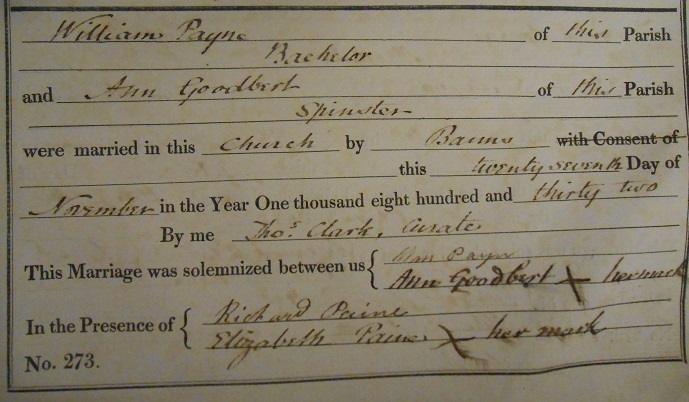 William Payne of this Parish
Bachelor
and Ann Goodbert of this Parish
Spinster
were married in this Church by Banns with Consent of
this twenty seventh Day of
November in the Year One thousand eight hundred and thirty two
By me Thos. Clark, Curate
This Marriage was solemnized between us { Wm Payn
Ann Goodbert X her mark
In the Presence of { Richard Paine
Elizabeth Paine X her mark
No. 273.